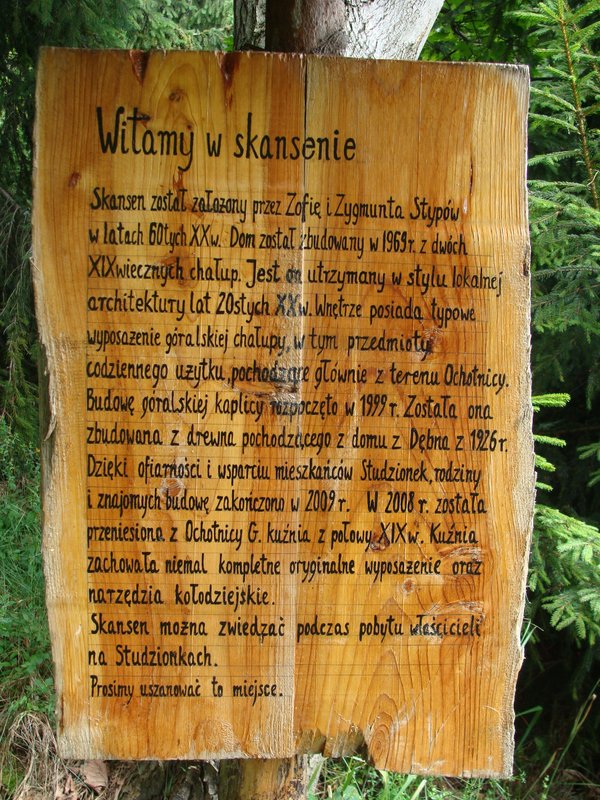 Witamy w skansenie
Skansen został założony przez Zofię i Zygmunta Stypów
w latach 60tych XXw. Dom został zbudowany w 1969r. z dwóch
XIXwiecznych chałup. Jest on utrzymany w stylu lokalnej
architektury lat 20stych XXw. Wnętrze posiada typowe
wyposażenie góralskiej chałupy, w tym przedmioty
codziennego użytku, pochodzące głównie z terenu Ochotnicy.
Budowę góralskiej kaplicy rozpoczęto w 1999r. Została ona
zbudowana z drewna pochodzącego z domu z Dębna z 1926r.
Dzięki ofiarności i wsparciu mieszkańców Studzionek, rodziny
i znajomych budowę zakończono w 2009r. W 2008r. została
przeniesiona z Ochotnicy G. kuźnia z połowy XIXw. Kuźnia
zachowała niemal kompletne oryginalne wyposażenie oraz
narzędzia kołodziejskie.
Skansen można zwiedzać podczas pobytu właścicieli
na Studzionkach.
Prosimy uszanować to miejsce.